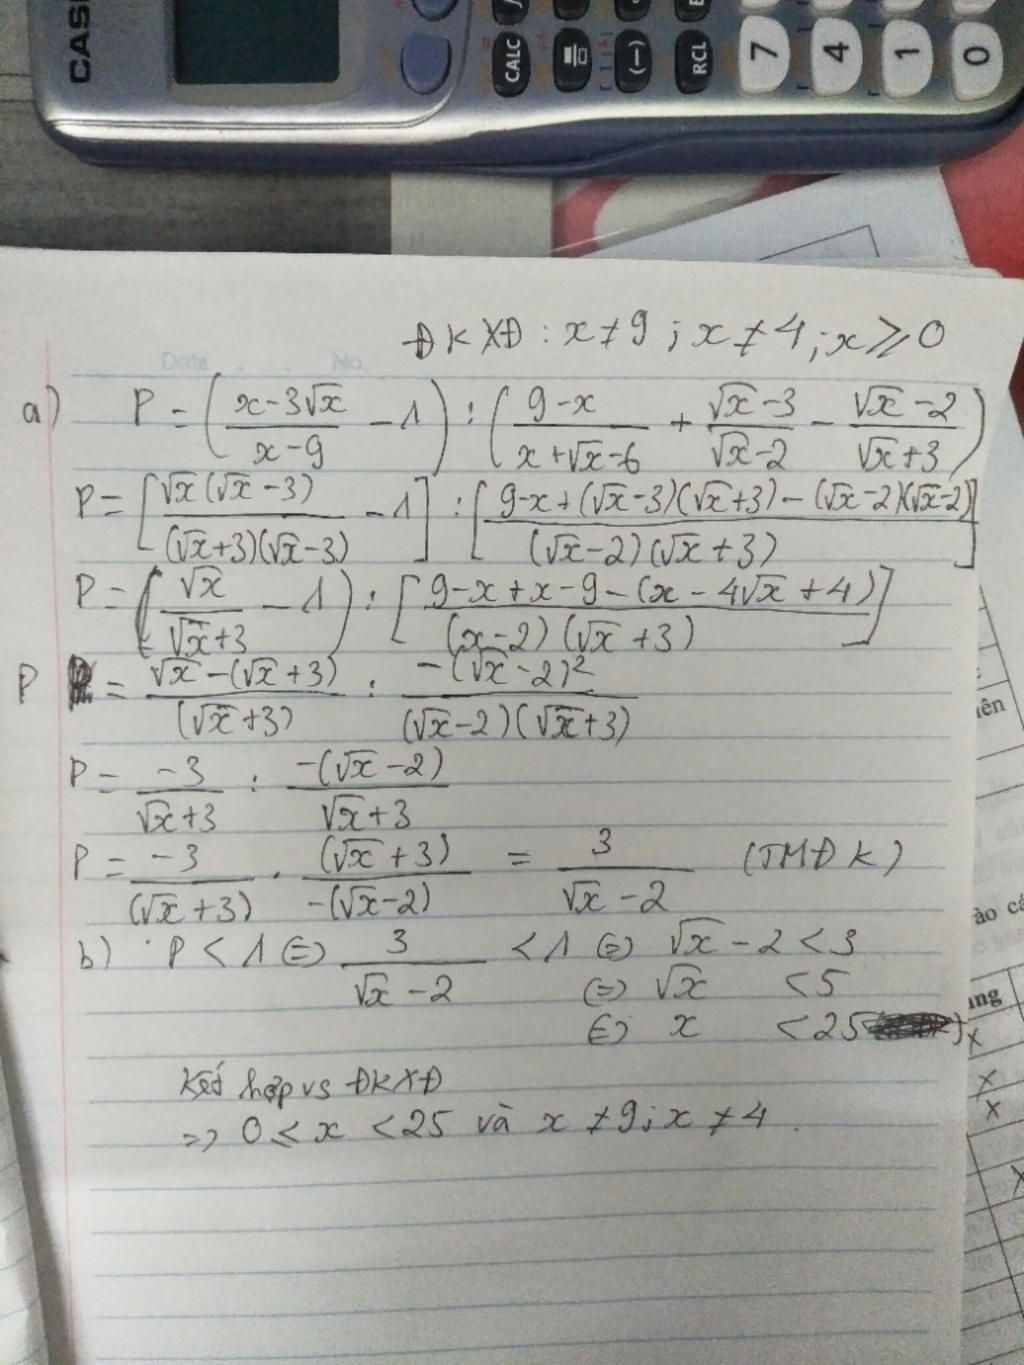 CASI
CALC
(−)
RCL
7
4
1
0
Date . . No.
ĐKXĐ : x ≠ 9 ; x ≠ 4 ; x ⩾ 0
a) P = ( (x - 3√x)/(x - 9) - 1 ) : ( (9 - x)/(x + √x - 6) + (√x - 3)/(√x - 2) - (√x - 2)/(√x + 3) )
P = [ √x(√x - 3)/((√x + 3)(√x - 3)) - 1 ] : [ (9 - x + (√x - 3)(√x + 3) - (√x - 2)(√x - 2))/((√x - 2)(√x + 3)) ]
P = ( √x/(√x + 3) - 1 ) : [ (9 - x + x - 9 - (x - 4√x + 4))/((x - 2)(√x + 3)) ]
P = (√x - (√x + 3))/((√x + 3)) : (-(√x - 2)²)/((√x - 2)(√x + 3))
P = -3/(√x + 3) : (-(√x - 2))/(√x + 3)
P = -3/((√x + 3)) . ((√x + 3))/(-(√x - 2)) = 3/(√x - 2) (TMĐK)
b) P < 1 ⇔ 3/(√x - 2) < 1 ⇔ √x - 2 < 3
⇔ √x < 5
⇔ x < 25
Kết hợp vs ĐKXĐ
=> 0 ≤ x < 25 và x ≠ 9 ; x ≠ 4 .
iên
ào cá
ing
x
x
x